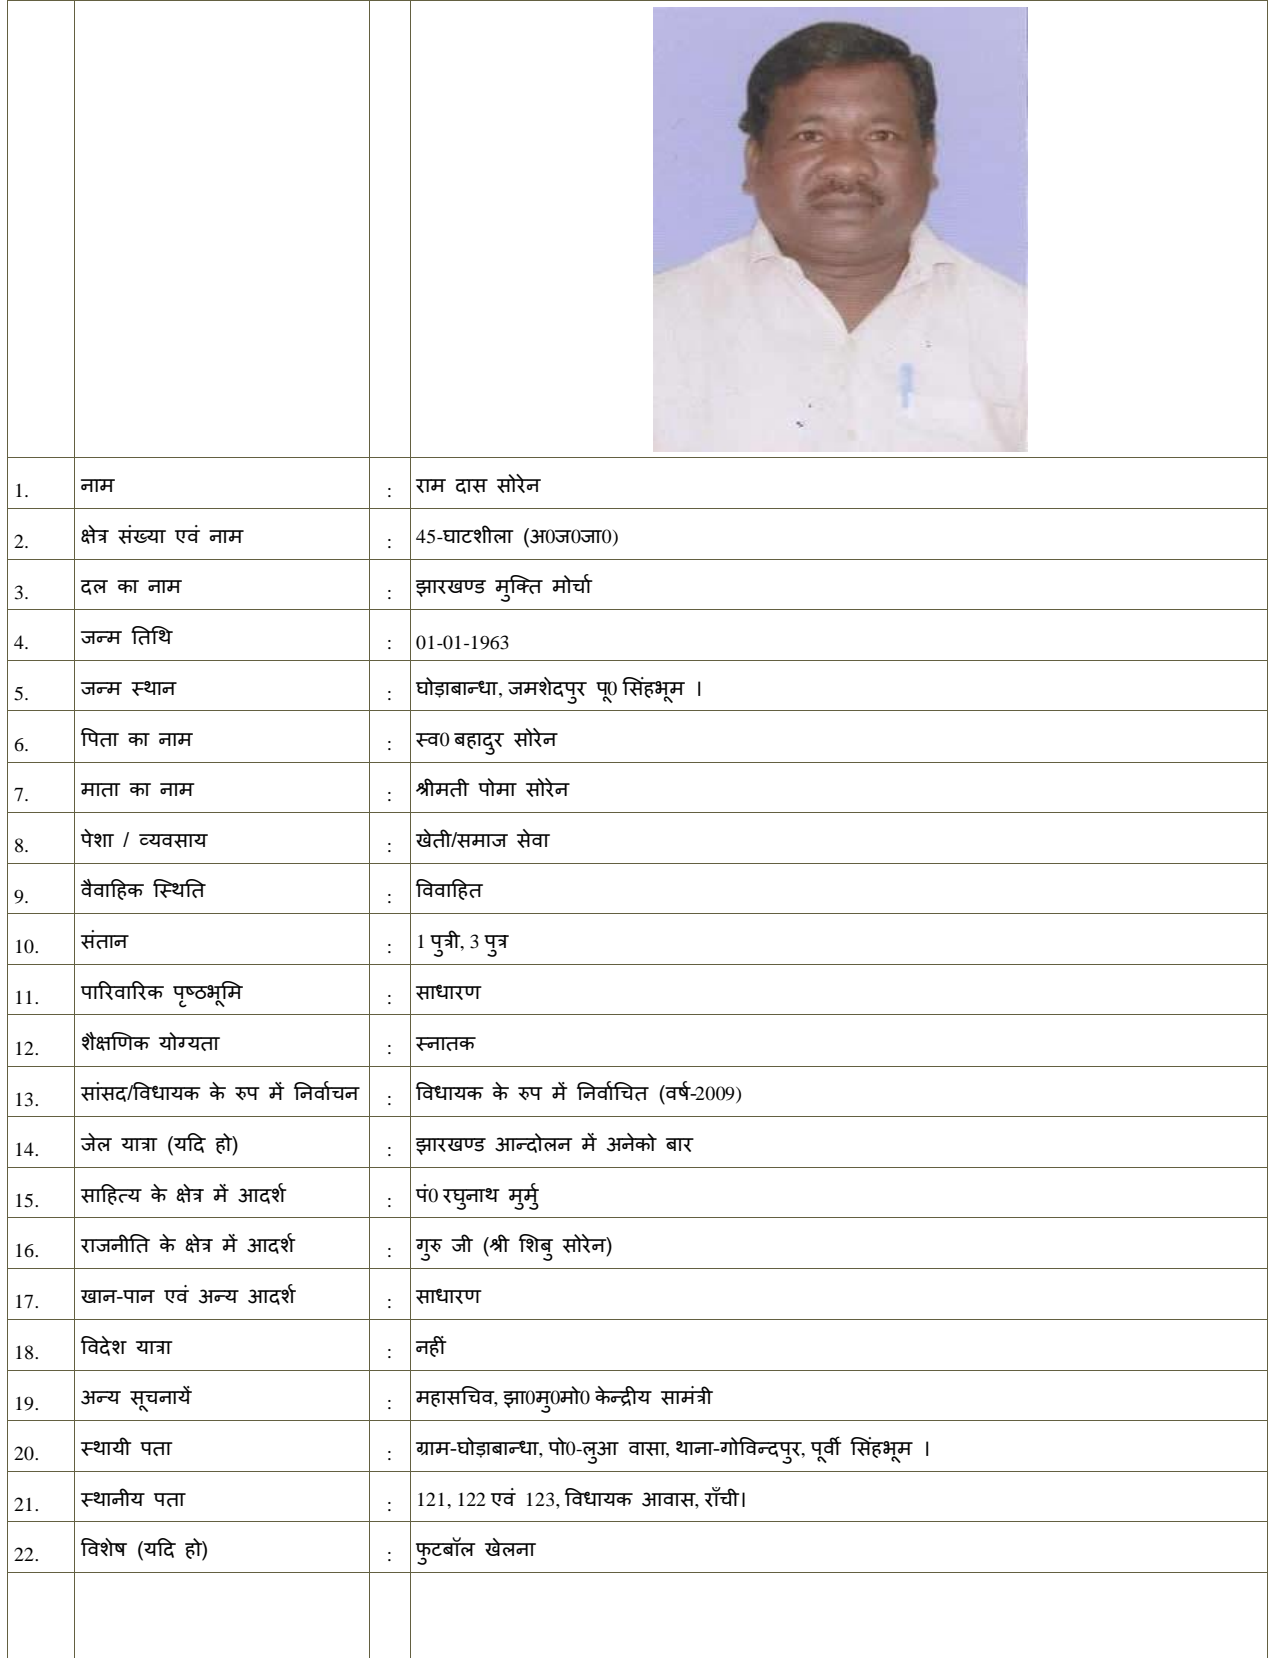 1. नाम : राम दास सोरेन
2. क्षेत्र संख्या एवं नाम : 45-घाटशीला (अ0ज0जा0)
3. दल का नाम : झारखण्ड मुक्ति मोर्चा
4. जन्म तिथि : 01-01-1963
5. जन्म स्थान : घोड़ाबान्धा, जमशेदपुर पू0 सिंहभूम ।
6. पिता का नाम : स्व0 बहादुर सोरेन
7. माता का नाम : श्रीमती पोमा सोरेन
8. पेशा / व्यवसाय : खेती/समाज सेवा
9. वैवाहिक स्थिति : विवाहित
10. संतान : 1 पुत्री, 3 पुत्र
11. पारिवारिक पृष्ठभूमि : साधारण
12. शैक्षणिक योग्यता : स्नातक
13. सांसद/विधायक के रुप में निर्वाचन : विधायक के रुप में निर्वाचित (वर्ष-2009)
14. जेल यात्रा (यदि हो) : झारखण्ड आन्दोलन में अनेको बार
15. साहित्य के क्षेत्र में आदर्श : पं0 रघुनाथ मुर्मु
16. राजनीति के क्षेत्र में आदर्श : गुरु जी (श्री शिबु सोरेन)
17. खान-पान एवं अन्य आदर्श : साधारण
18. विदेश यात्रा : नहीं
19. अन्य सूचनायें : महासचिव, झा0मु0मो0 केन्द्रीय सामंत्री
20. स्थायी पता : ग्राम-घोड़ाबान्धा, पो0-लुआ वासा, थाना-गोविन्दपुर, पूर्वी सिंहभूम ।
21. स्थानीय पता : 121, 122 एवं 123, विधायक आवास, राँची।
22. विशेष (यदि हो) : फुटबॉल खेलना